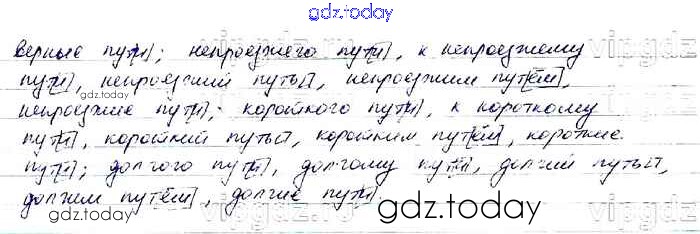 gdz.today
верные пут[и]; непроезжего пут[и], к непроезжему
пут[и], непроезжий путь, непроезжим пут[ём],
gdz.today
непроезжие пут[и]; короткого пут[и], к короткому
пут[и], короткий путь, коротким пут[ём], короткие
пут[и]; долгого пут[и], долгому пут[и], долгий путь,
долгим пут[ём], долгие пут[и]
gdz.today
gdz.today